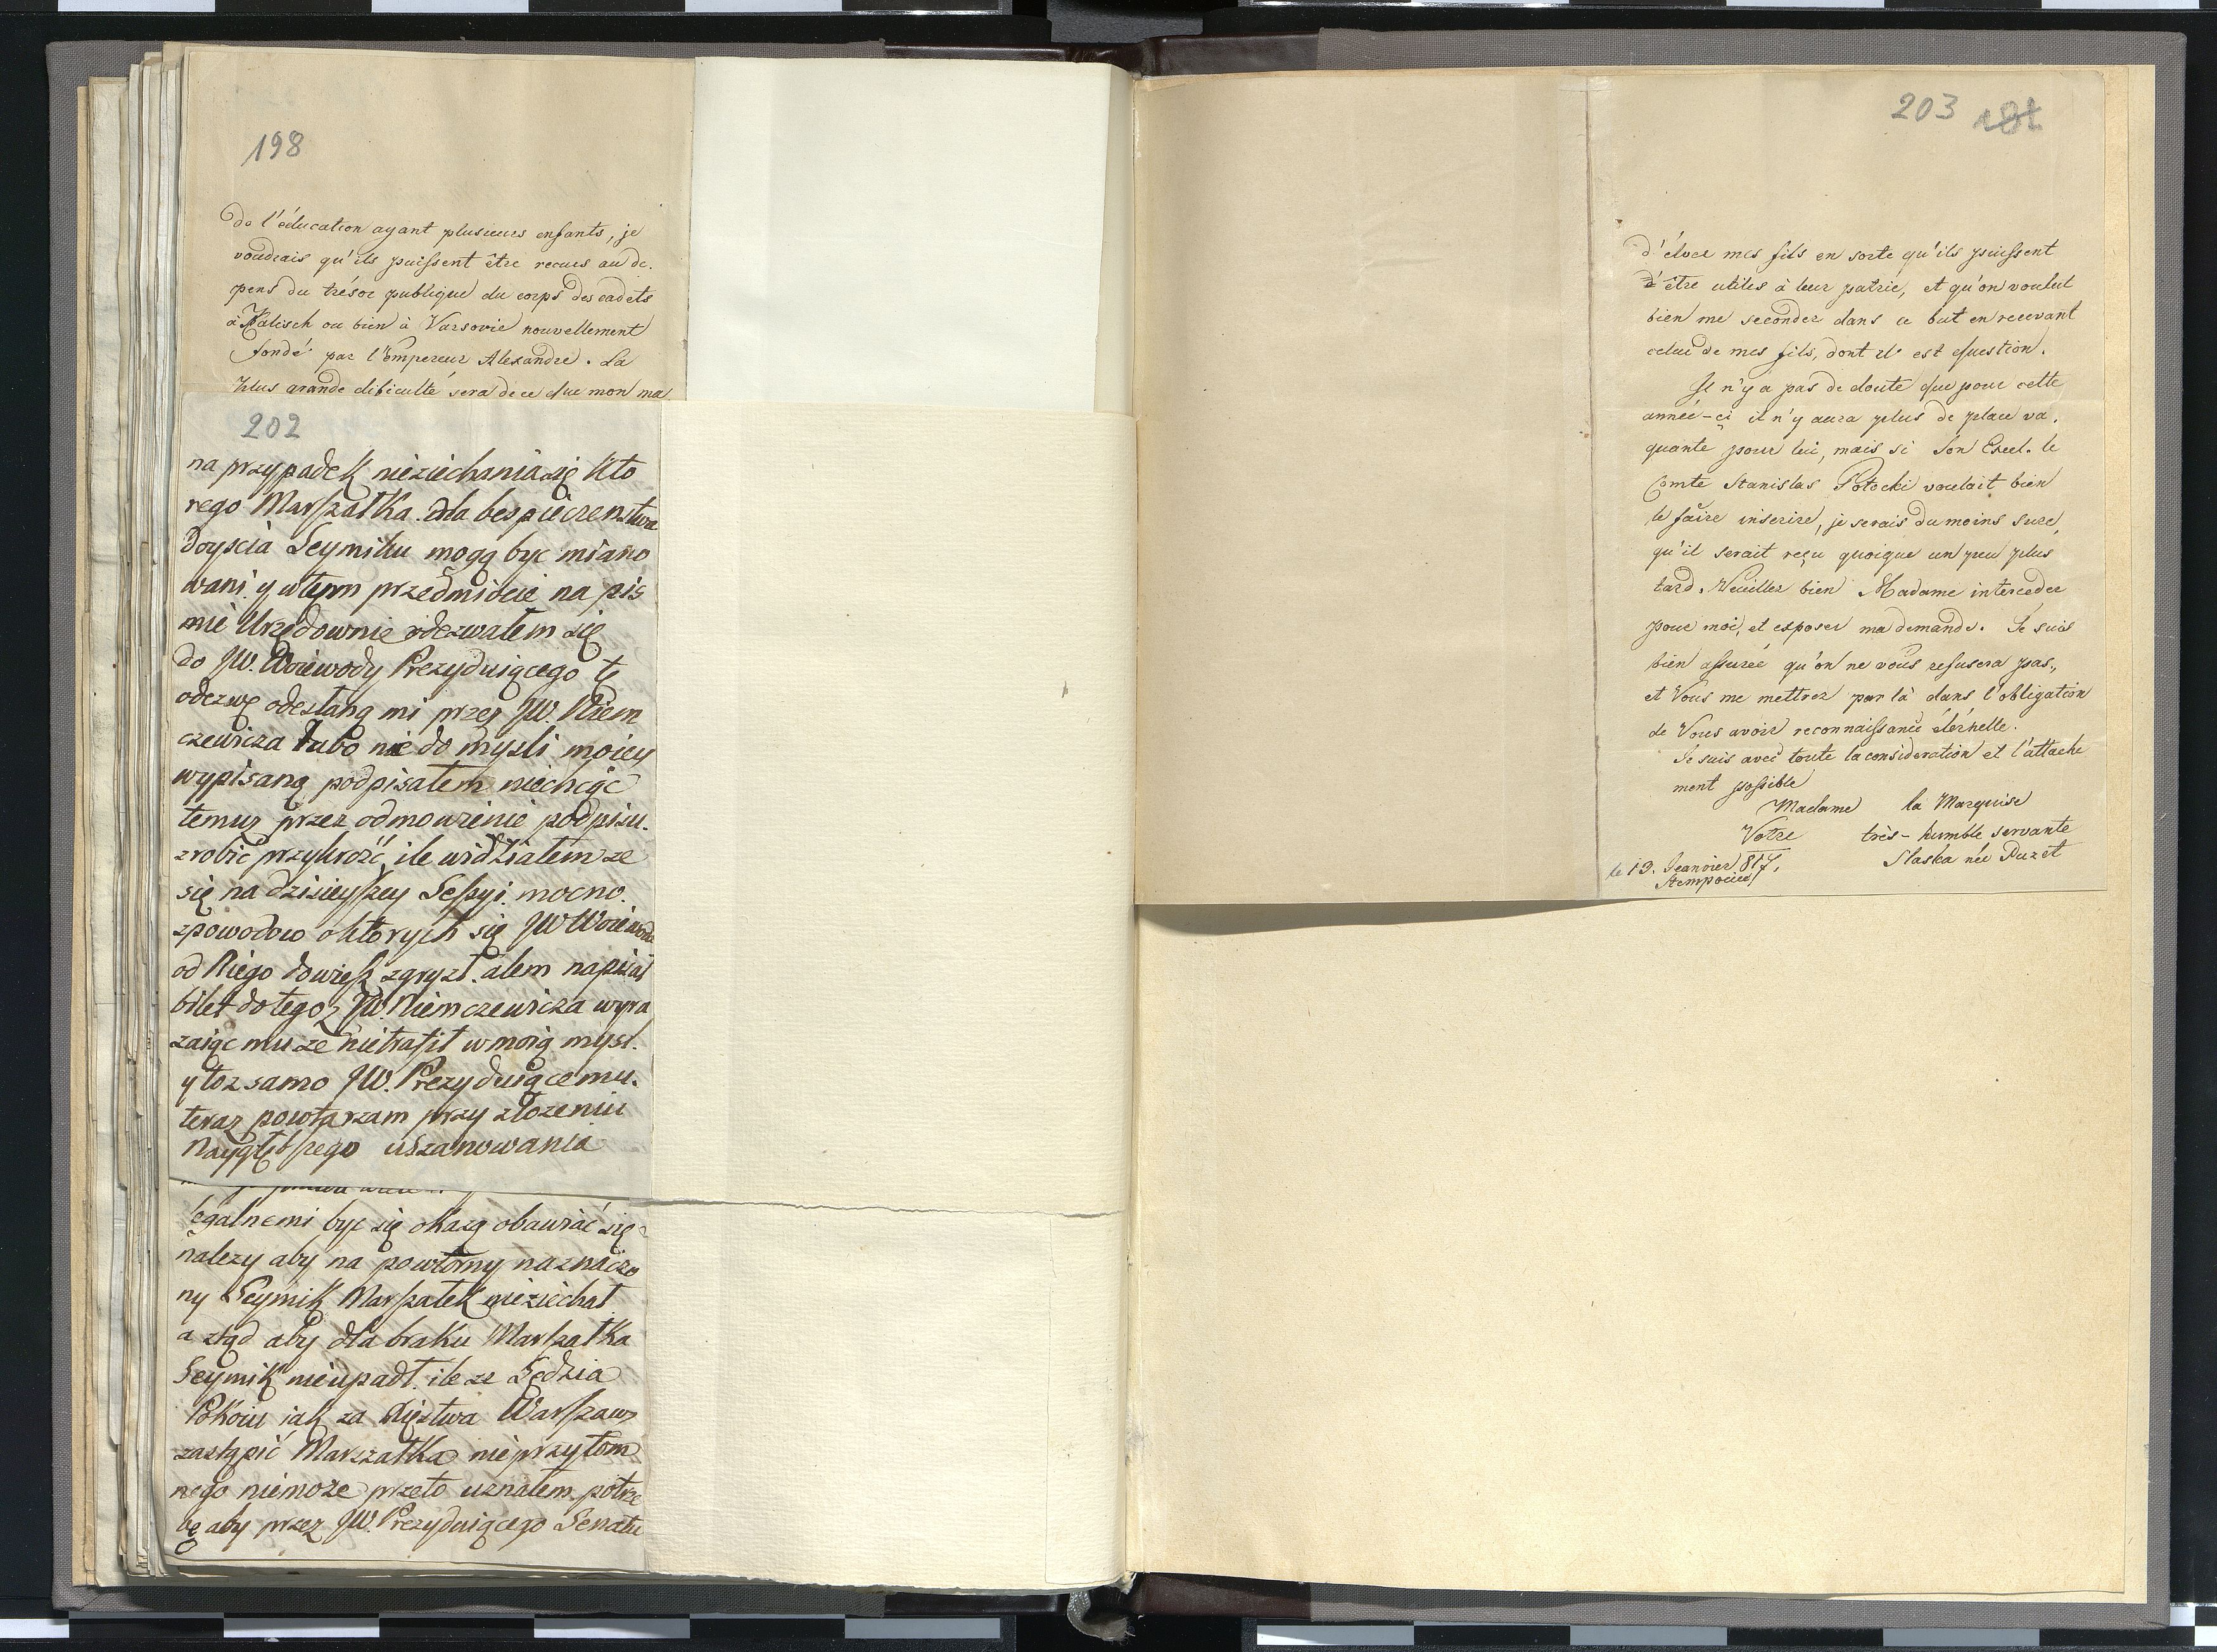 198
de l'éducation ayant plusieurs enfants, je
voudrais qu'ils puissent être recues au de.
pens du trésor publique du corps des cadets
à Kalisch ou bien à Varsovie nouvellement
fondé par l'empereur Alexandre. La
plus grande dificulté sera de ce que mon ma
202
na przypadek nieziechania się Kto
rego Marszałka. dla bespieczenstwa
doyscia Seymiku mogą byc miano
wani. y wtym przedmiocie na pis
mie Urzędownie odezwałem się
do JW. Woiewody Prezyduiącego tę
odezwę odesłaną mi przez JW. Niem
czewicza lubo nie do mysli moiey
wypisaną podpisałem niechcąc
temuz przez odmowienie podpisu.
zrobić przykrość, ile widziałem ze
się na dzisieyszey Sessyi. mocno.
zpowodow oktorych się JW Woiewoda
od Niego dowiesz zgryzł. alem napisał
bilet do tegoz JW. Niemczewicza wyra
zaiąc mu ze nietrafił w moią mysl.
y toz samo JW. Prezyduiącemu.
teraz powtarzam przy złozeniu
Naygłębszego uszanowania
egalnemi byc się okazą obawiać się
nalezy aby na powtorny naznaczo
ny Seymik Marszałek nieziechał
a ztąd aby dla braku Marszałka
Seymik nieupadł. ile ze Sędzia
Pokoiu jak za Xięztwa Warszaws
zastąpić Marszałka nieprzytom
nego niemoże przeto uznałem potrze
bę aby przez JW. Prezyduiącego Senatu
203 181
d'élever mes fils en sorte qu'ils puissent
d'être utiles à leur patrie, et qu'on voulut
bien me seconder dans ce but en recevant
celui de mes fils, dont il est question.
Il n'y a pas de doute que pour cette
année-ci il n'y aura plus de place va.
quante pour lui, mais si Son Excel. le
Comte Stanislas Potocki voulait bien
le faire inscrire, je serais du moins sure,
qu'il serait reçu quoique un peu plus
tard. Veuillez bien Madame interceder
pour moi, et exposer ma demande. Je suis
bien assurée qu'on ne vous refusera pas,
et Vous me mettrez par là dans l'obligation
de Vous avoir reconnaissance éternelle.
Je suis avec toute la consideration et l'attache
ment possible
Madame la Marquise
Votre très-humble servante
Slaska née Puzet
le 13. Jeanvier 817.